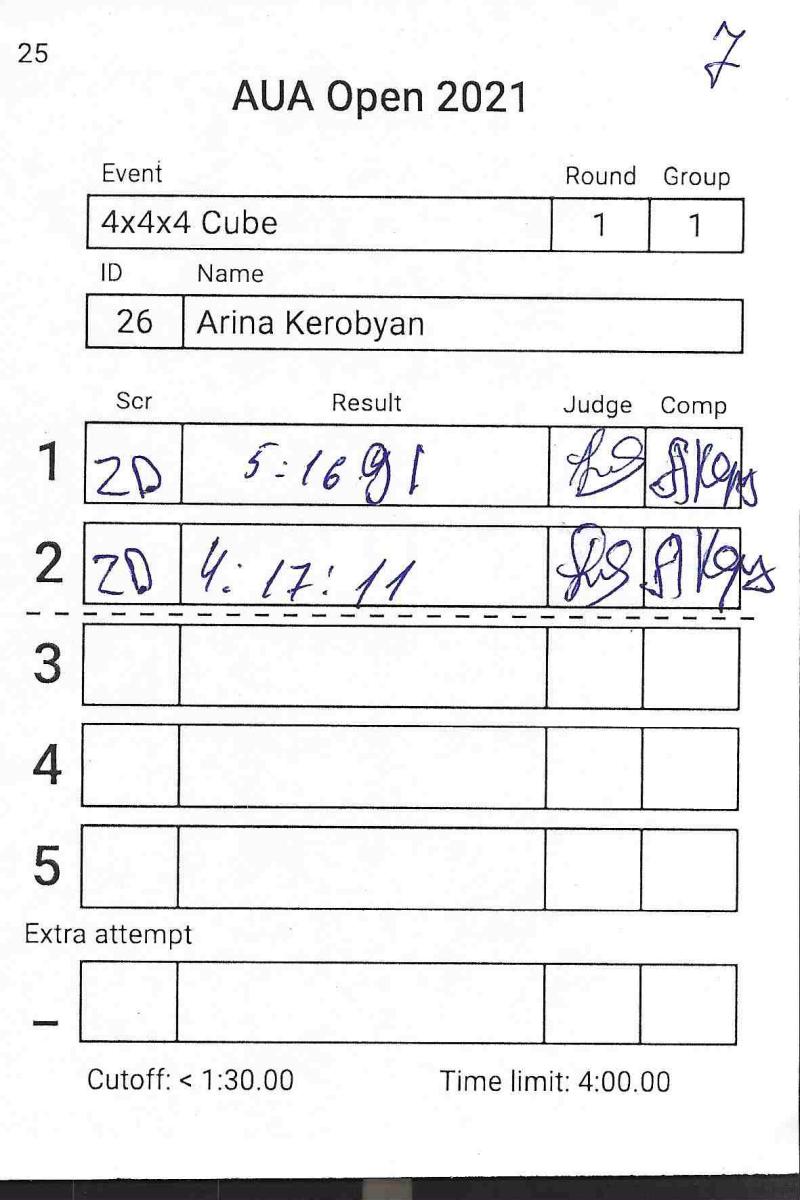 25
7
AUA Open 2021
Event Round Group
4x4x4 Cube 1 1
ID Name
26 Arina Kerobyan
Scr Result Judge Comp
1 ZD 5:16 91
2 ZD 4:17:11
3
4
5
Extra attempt
_
Cutoff: < 1:30.00 Time limit: 4:00.00